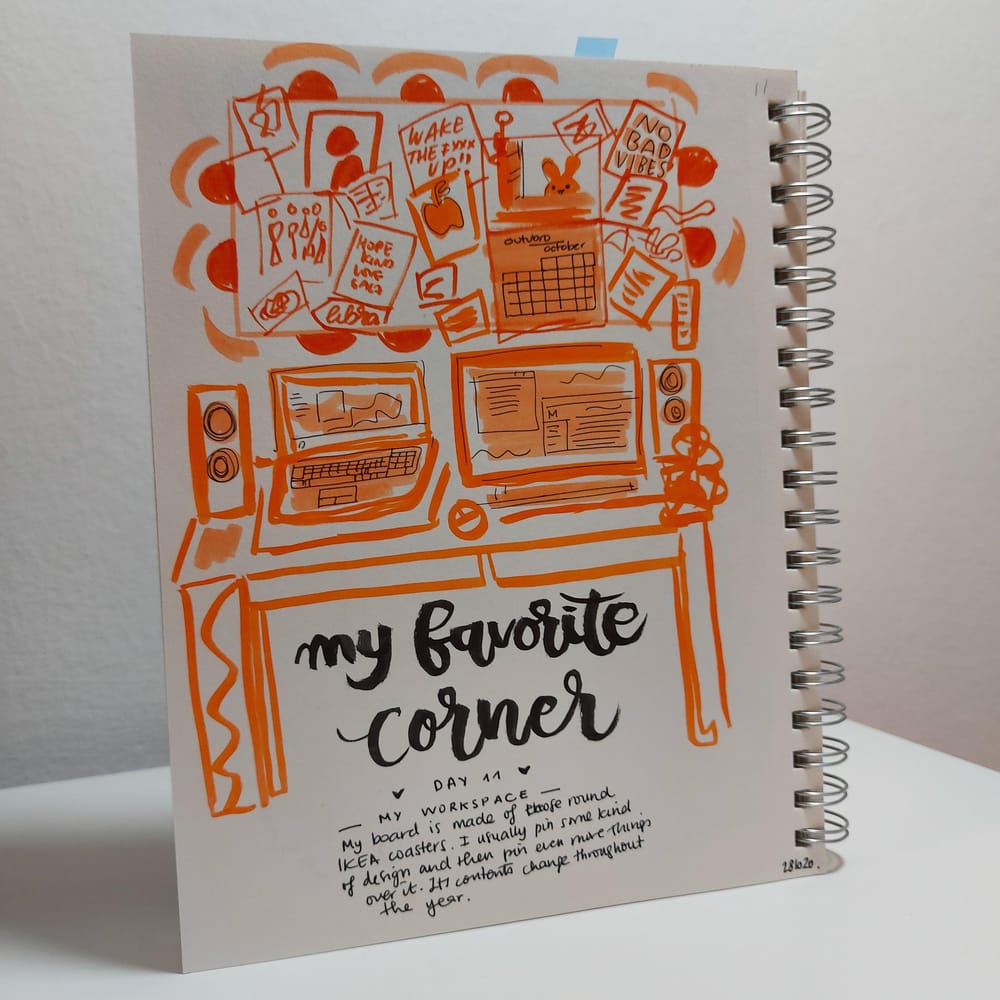 11
WAKE
THE
UP!!
NO
BAD
VIBES
outubro
october
HOPE
KIND
LOVE
libra
M
my favorite
corner
DAY 11
MY WORKSPACE
My board is made of those round
IKEA coasters. I usually pin some kind
of design and then pin even more things
over it. Its contents change throughout
the year.
281020.